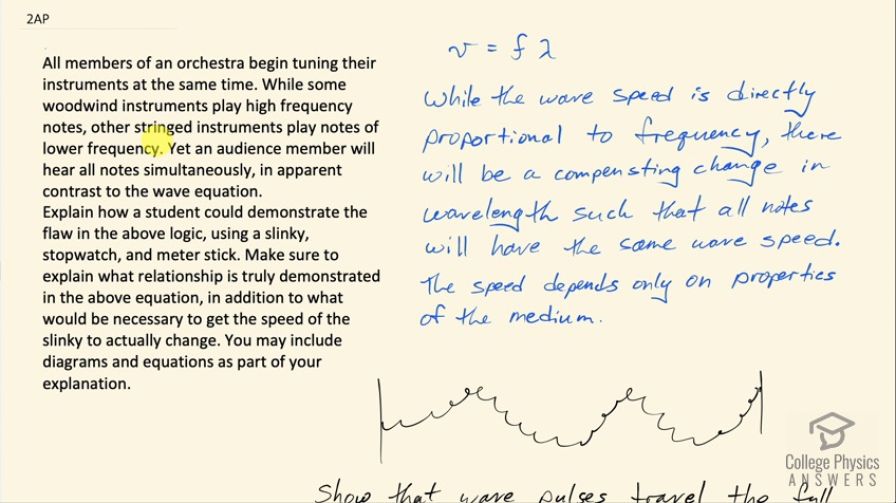 2AP
All members of an orchestra begin tuning their
instruments at the same time. While some
woodwind instruments play high frequency
notes, other stringed instruments play notes of
lower frequency. Yet an audience member will
hear all notes simultaneously, in apparent
contrast to the wave equation.
Explain how a student could demonstrate the
flaw in the above logic, using a slinky,
stopwatch, and meter stick. Make sure to
explain what relationship is truly demonstrated
in the above equation, in addition to what
would be necessary to get the speed of the
slinky to actually change. You may include
diagrams and equations as part of your
explanation.
v = f λ
While the wave speed is directly
proportional to frequency, there
will be a compensting change in
wavelength such that all notes
will have the same wave speed.
The speed depends only on properties
of the medium.
Show that wave pulses travel the full
College Physics
ANSWERS